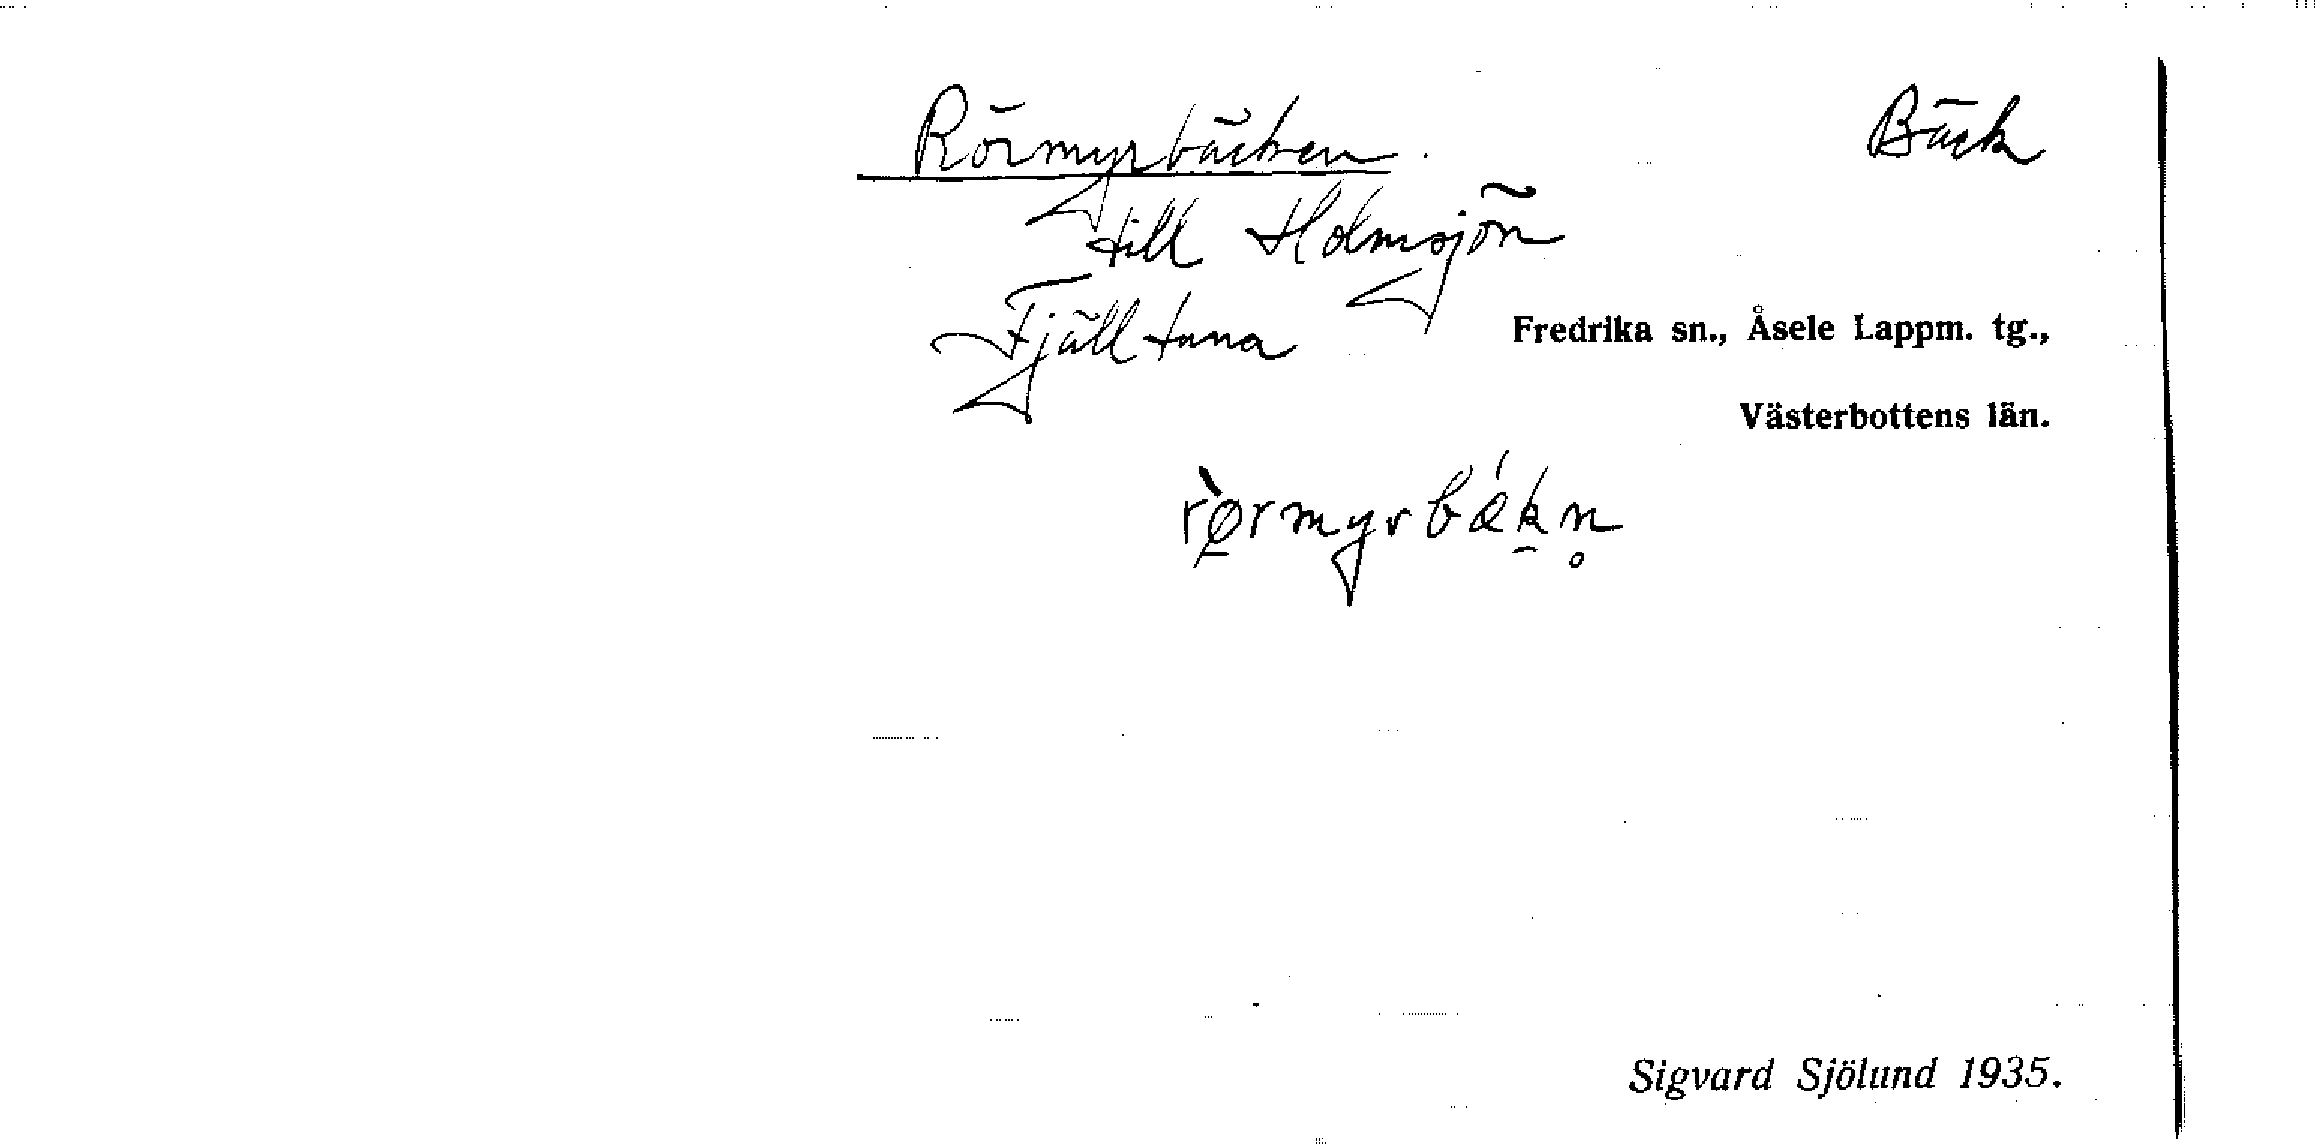 Rörmyrbäcken. Bäck
till Holmsjön
Fjälltuna
Fredrika sn., Åsele Lappm. tg.,
Västerbottens län.
Sigvard Sjölund 1935.